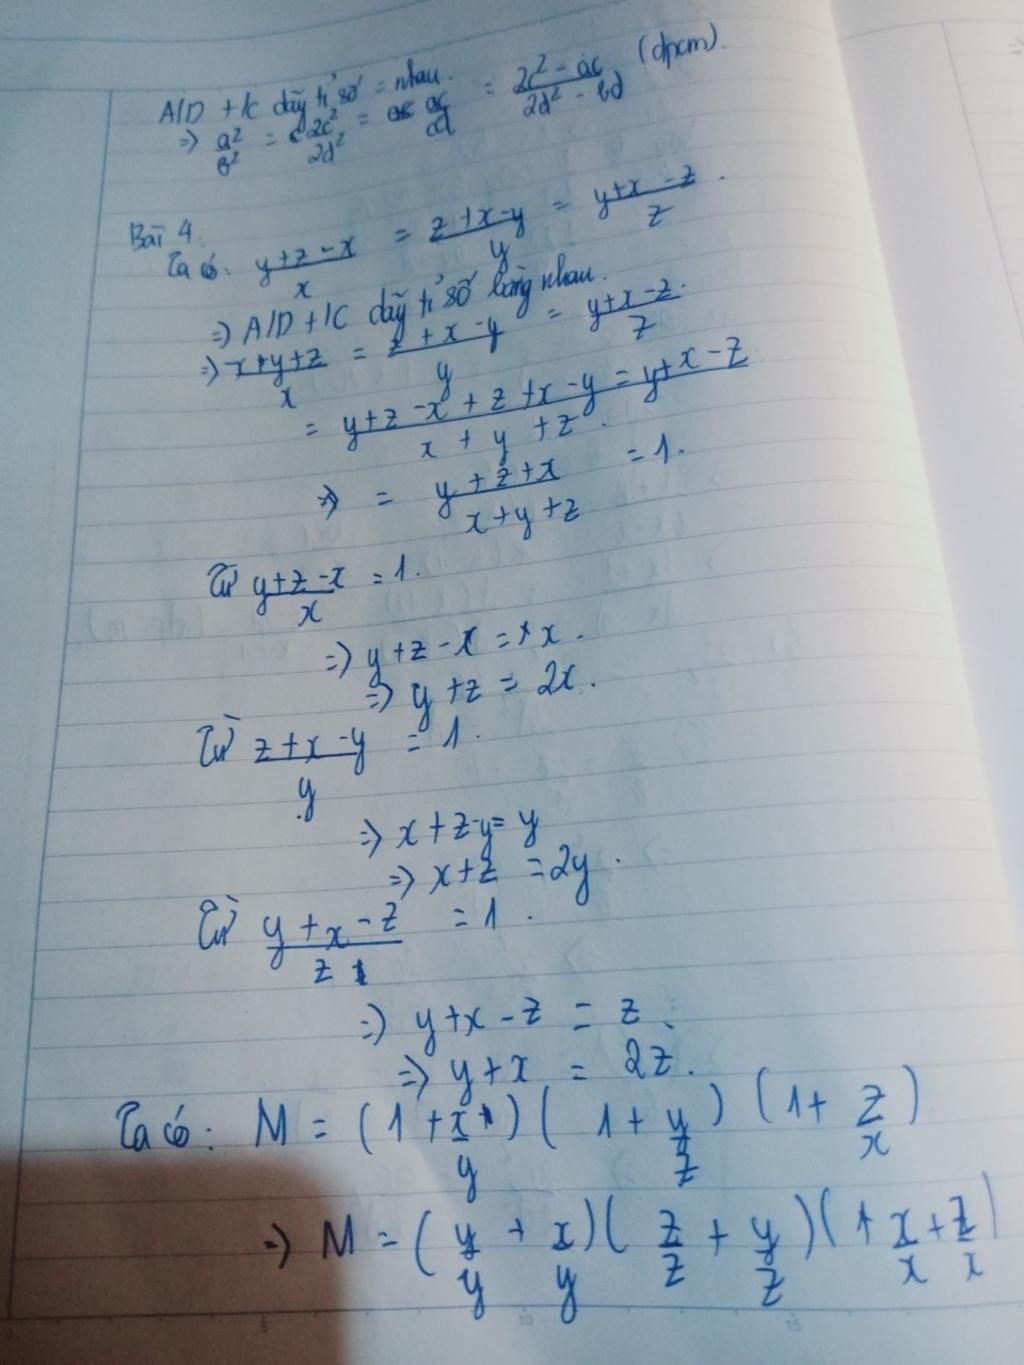 A/D t/c dãy tỉ số = nhau.
=> a²/b² = 2c²/2d² = ac/cd = 2c² - ac/2d² - bd (đpcm).
Bài 4
Ta có: y+z-x/x = z+x-y/y = y+x-z/z.
=> A/D t/c dãy tỉ số bằng nhau.
=> x+y+z/x = z+x-y/y = y+x-z/z.
= y+z-x+z+x-y=y+x-z/x+y+z.
=> = y+z+x/x+y+z = 1.
Từ y+z-x/x = 1.
=> y+z-x = x.
=> y+z = 2x.
Từ z+x-y/y = 1.
=> x+z-y = y
=> x+z = 2y.
Từ y+x-z/z = 1.
=> y+x-z = z
=> y+x = 2z.
Ta có: M = (1+x/y)(1+y/z)(1+z/x)
=> M = (y/y + x/y)(z/z + y/z)(x/x + z/x)
5 10 15